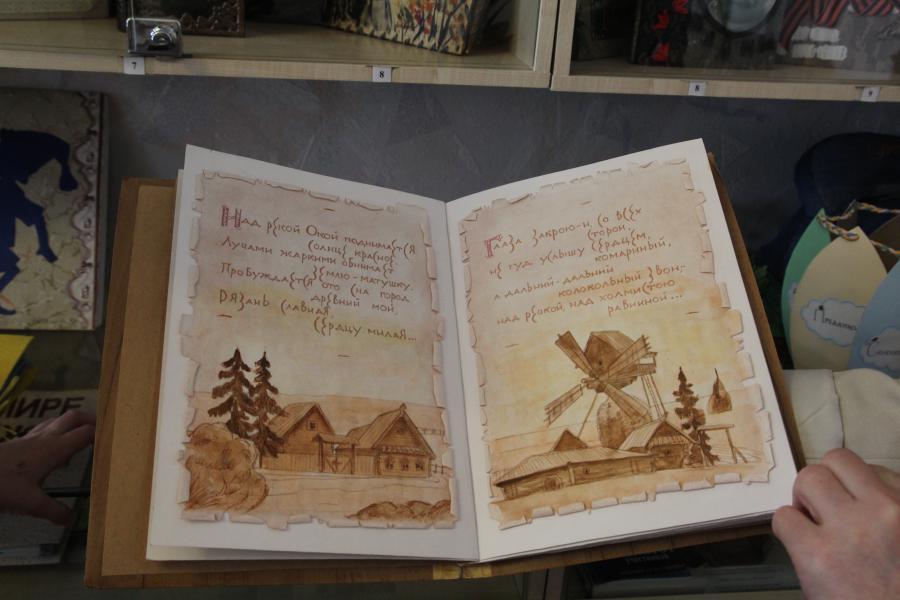 7
8
8
9
Над рекой Окой поднимается
солнце красно
Лугами жаркими обнимает
землю-матушку.
Пробуждается ото сна город
древний мой,
Рязань славная,
сердцу милая...
Глаза закрою-и со всех
сторон,
не гуд услышу сердцем,
комариный,
а дальний-дальний
колокольный звон-
над рекой, над холмистою
равниной...
МИРЕ